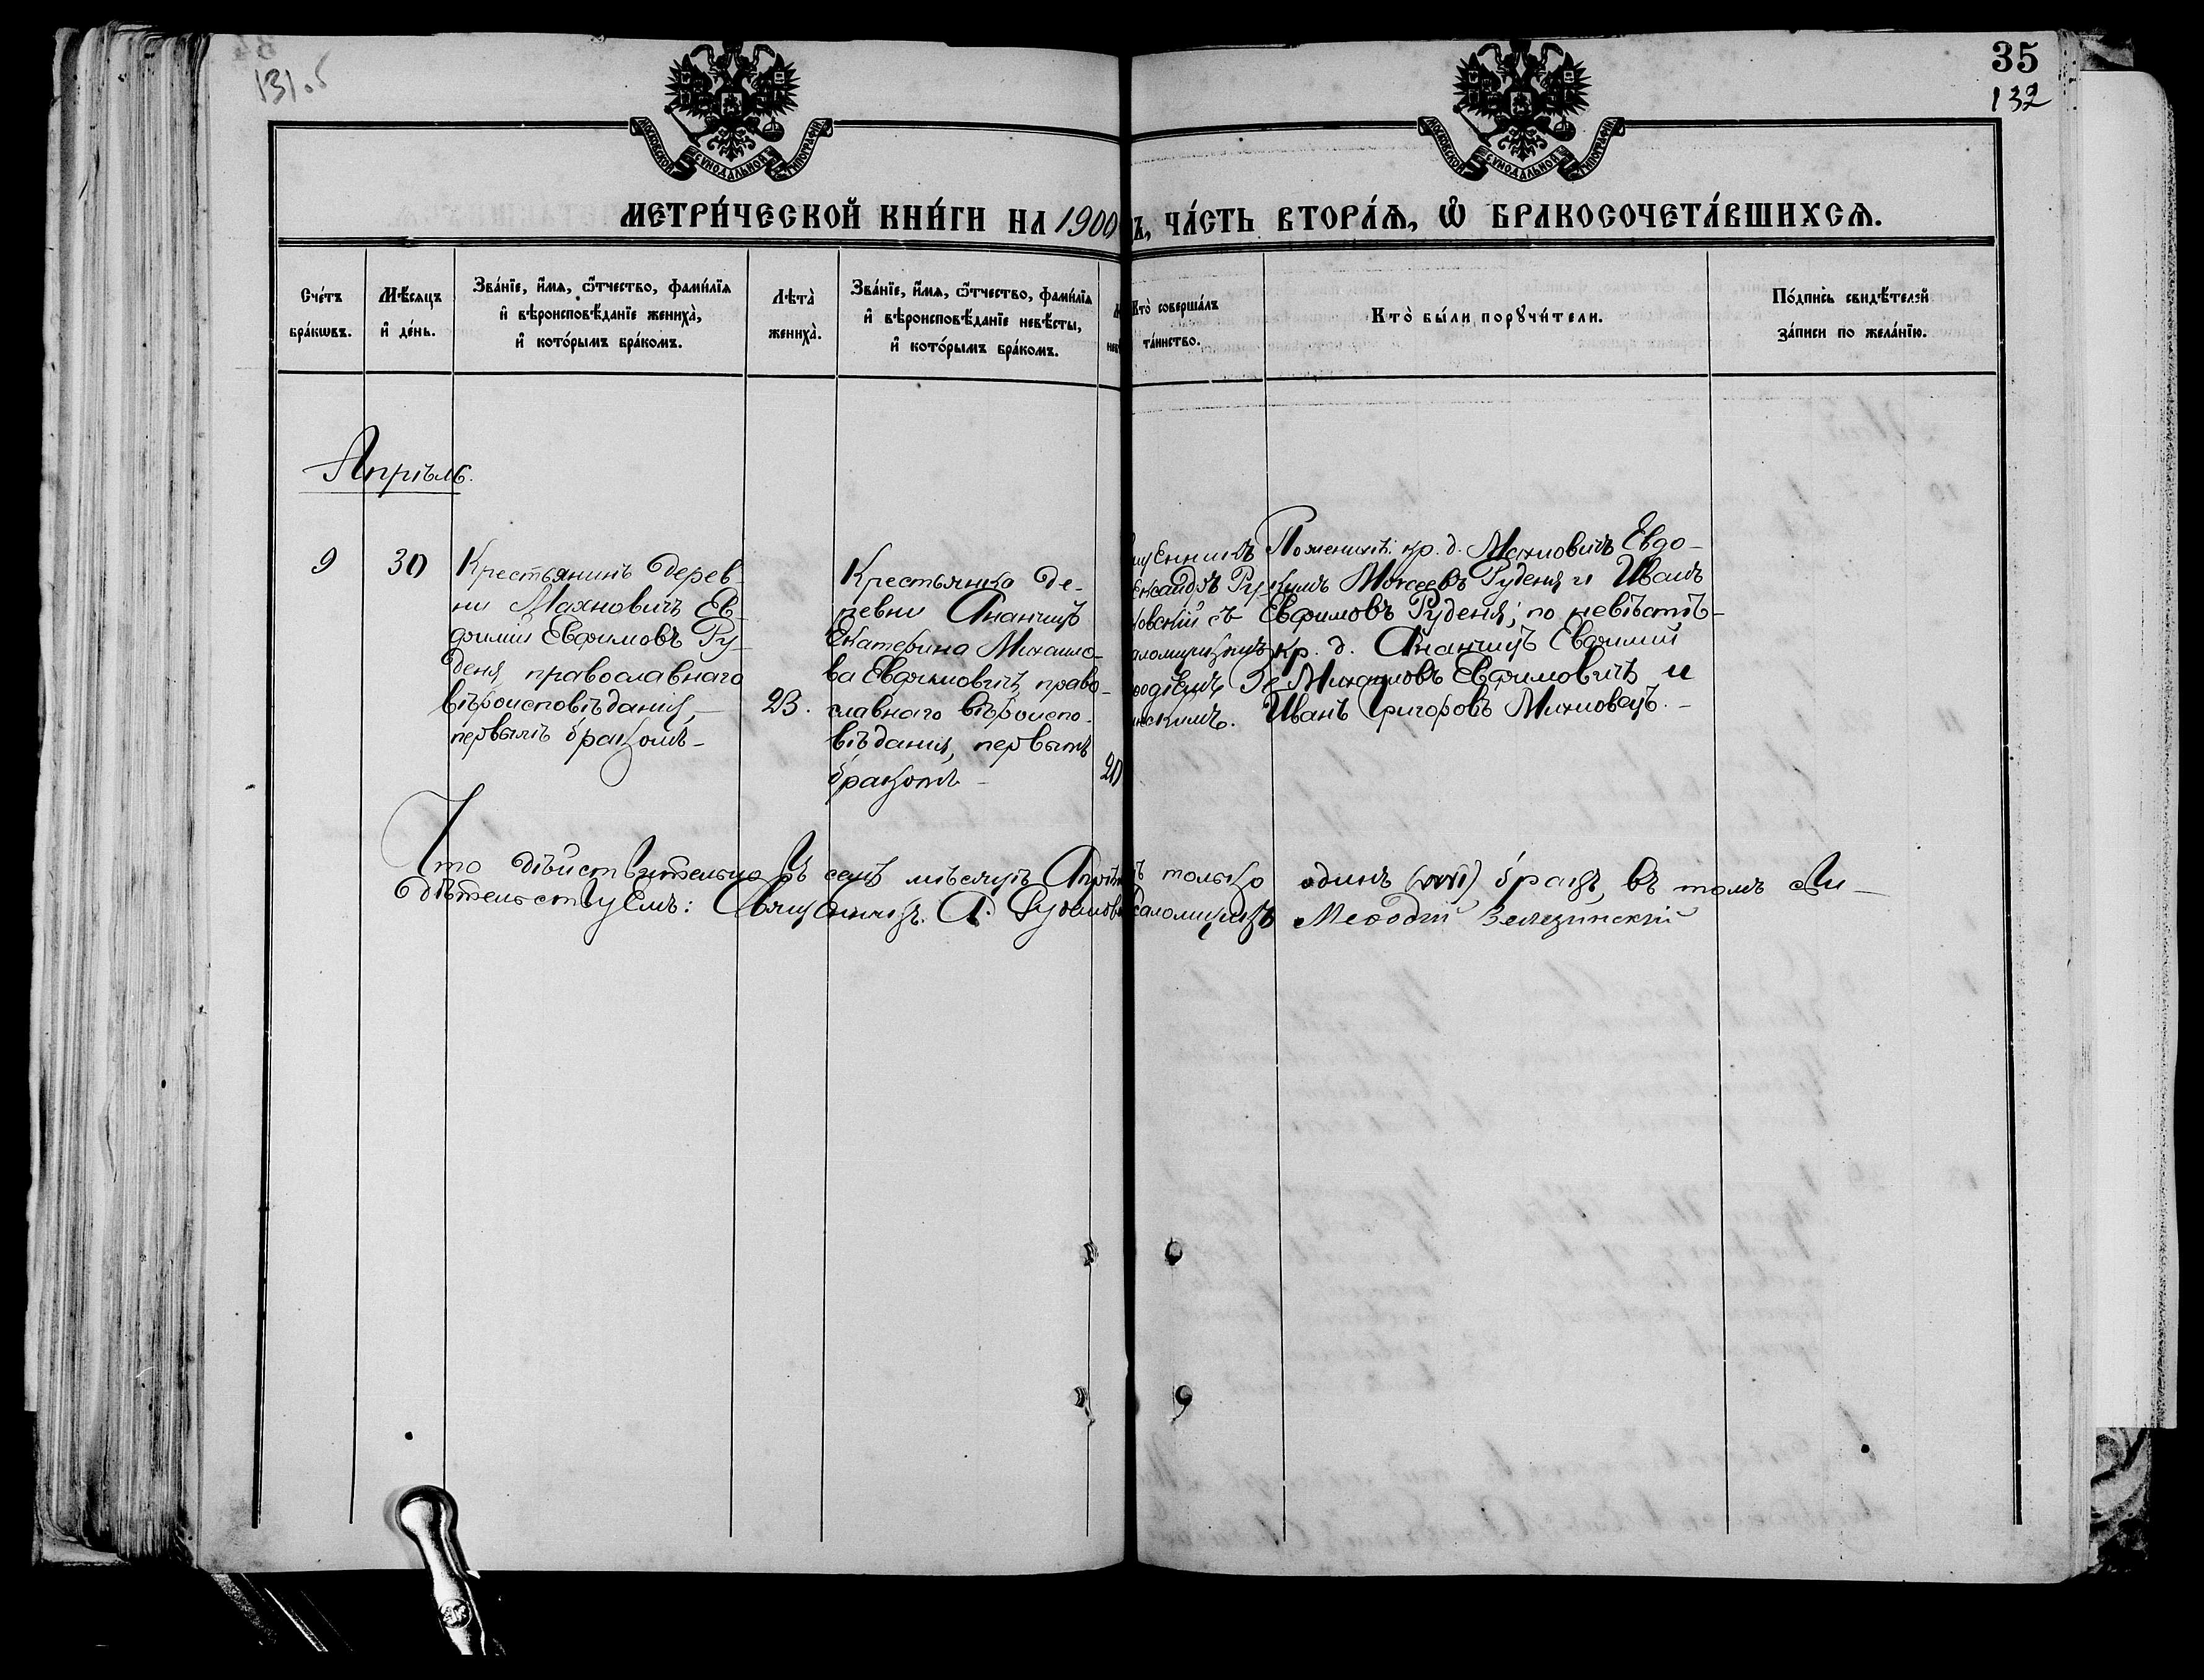 131об
35
132
МОСКОВСКОЙ СѴНОДАЛЬНОЙ ТИПОГРАФІИ
МОСКОВСКОЙ СѴНОДАЛЬНОЙ ТИПОГРАФІИ
МЕТРИ́ЧЕСКОЙ КНИ́ГИ НА 1900
Ъ, ЧА́СТЬ ВТОРА́Ѧ, Ѡ҆ БРАКОСОЧЕТА́ВШИХСѦ.
Сче́тъ
бра́кѡвъ.
Мѣ́сѧцъ
и҆ де́нь.
Зва́нїе, и҆́мѧ, ѻ҆́тчество, фами́лїѧ
и҆ вѣроисповѣ́данїе жениха̀,
и҆ кото́рымъ бра́комъ.
Лѣта̀
жениха̀.
Зва́нїе, и҆́мѧ, ѻ҆́тчество, фами́лїѧ
и҆ вѣроисповѣ́данїе невѣ́сты,
и҆ кото́рымъ бра́комъ.
Кто̀ соверша́лъ
та́инство.
Кто̀ бы́ли порꙋчи́тели.
По́дпись свидѣ́телей
за́писи по жела́нїю.
Апрѣль.
9
30
Крестьянинъ дерев-
ни Махновичъ Ев-
фимій Евфимовъ Ру-
деня, православнаго
вѣроисповѣданія,
первымъ бракомъ
23.
Крестьянка де-
ревни Ананчицъ
Екатерина Михаило-
ва Евфимовичъ, право-
славнаго вѣроиспо-
вѣданія, первымъ
бракомъ
20
щенникъ
ександръ Ру-
овскій съ
аломщикомъ
одіемъ Зе-
инскимъ.
По женихѣ: кр. д. Махновичъ Евдо-
кимъ Моисеевъ Руденя и Иванъ
Евфимовъ Руденя; по невѣстѣ-
кр. д. Ананчицъ Евфимій
Михаиловъ Евфимовичъ и
Иванъ Григоровъ Михновецъ.
Что дѣйствительно въ семъ мѣсяцѣ Апрѣл ъ только одинъ бракъ, въ томъ сви-
дѣтельствуемъ: Священникъ А. Рудаков саломщикъ Меѳодій Зелезинскій